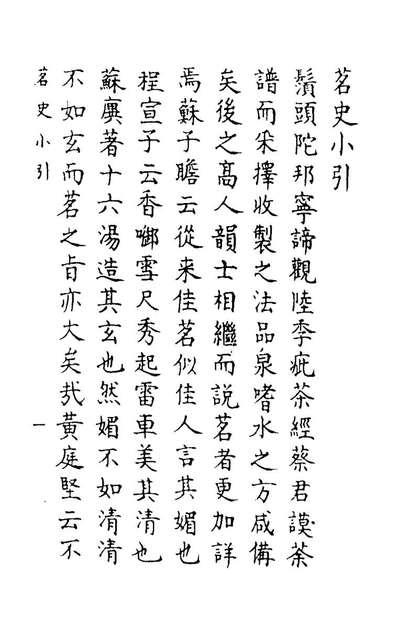 茗史小引
鬚頭陀邦寧諦觀陸季疵茶經蔡君謨茶
譜而采擇收製之法品泉嗜水之方咸備
矣後之高人韻士相繼而說茗者更加詳
焉蘇子瞻云從来佳茗似佳人言其媚也
程宣子云香啣雪尺秀起雷車美其清也
蘇廙著十六湯造其玄也然媚不如清清
不如玄而茗之旨亦大矣㢤黃庭堅云不
茗史小引
一